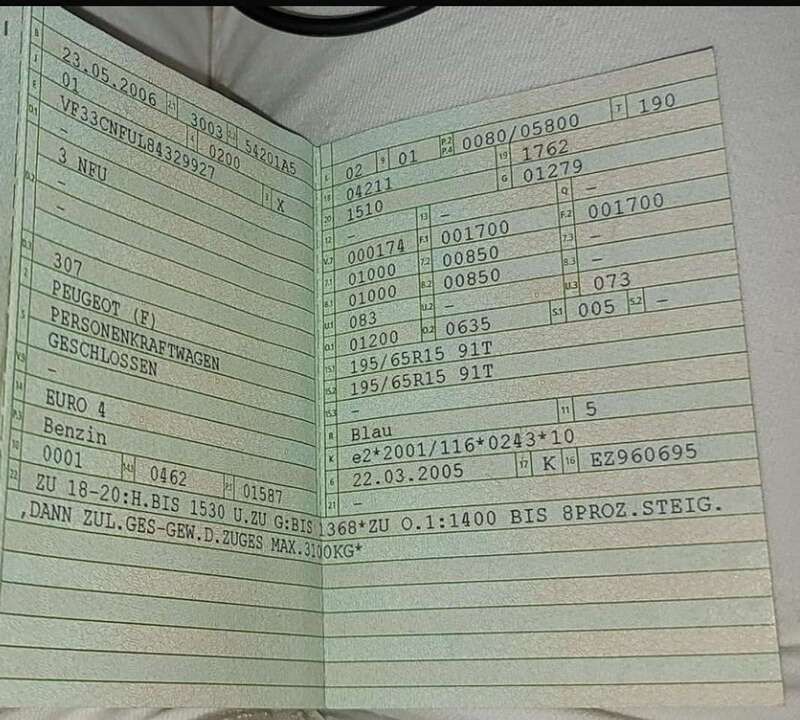 B 23.05.2006 2.1 3003 2.2 54201A5
J 01 4 0200
E VF33CNFUL84329927 3 X
D.1 -
3 NFU
D.2 -
-
D.3 307
2 PEUGEOT (F)
5 PERSONENKRAFTWAGEN
GESCHLOSSEN
V.9 -
14 EURO 4
P.3 Benzin
10 0001 14.1 0462 P.1 01587
L 02 9 01 P.2 P.4 0080/05800 T 190
18 04211 19 1762
20 1510 G 01279
12 - 13 - Q -
V.7 000174 F.1 001700 F.2 001700
7.1 01000 7.2 00850 7.3 -
8.1 01000 8.2 00850 8.3 -
U.1 083 U.2 - U.3 073
O.1 01200 O.2 0635 S.1 005 S.2 -
15.1 195/65R15 91T
15.2 195/65R15 91T
15.3 -
R Blau 11 5
K e2*2001/116*0243*10
6 22.03.2005 17 K 16 EZ960695
21 -
22 ZU 18-20:H.BIS 1530 U.ZU G:BIS 1368*ZU O.1:1400 BIS 8PROZ.STEIG.
,DANN ZUL.GES-GEW.D.ZUGES MAX.3100KG*